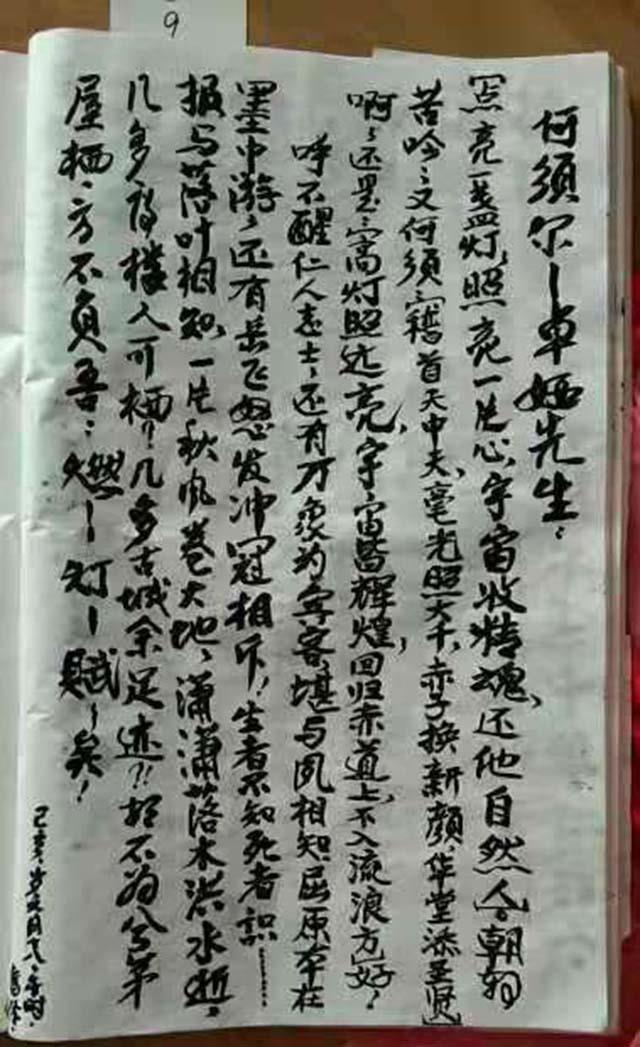 9
何须尔—卓娅先生：
〔点亮一盏灯，照亮一片心，宇宙收精魂，还他自然人，朝朝
苦吟：又何须：稽首天中天，毫光照大千，赤子换新颜，华堂添圣贤〕
啊：还是：高灯照远亮，宇宙皆辉煌，回归赤道上，不入流浪方好！
呼不醒仁人志士：还有万象为宾客，堪与风相知，屈原本在
墨中游，还有岳飞怒发冲冠相斥！生者不知死者识………
报与落叶相知，一片秋风卷大地，潇潇落木洪水逝，
几多层楼人可栖！几多古城余足迹！！招不为兮茅
屋栖：方不负吾：燃—灯—赋—矣！
己亥岁